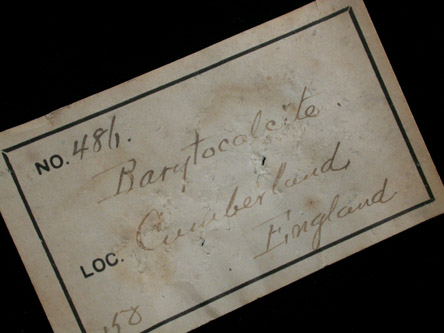 NO. 48/1.
Barytocalcite.
LOC. Cumberland,
England
.50